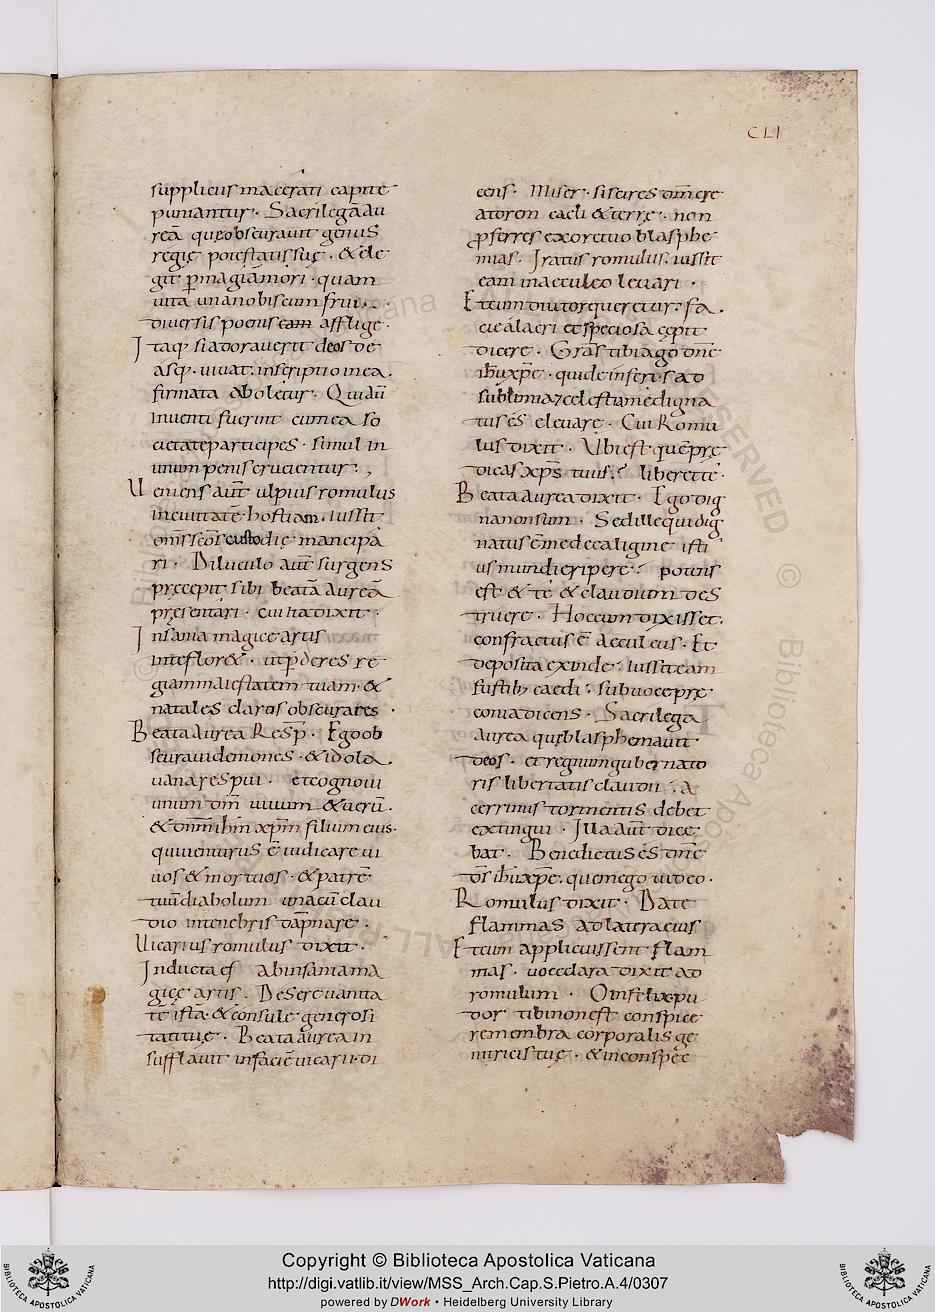 CLI
suppliciis macerati capite
puniantur. Sacrilegā au
reā quę obscurauit genus
regię potestatis suę. & ele
git p magiā mori. quam
uita una nobiscum frui.
diuersis poenis eam afflige.
Itaq; si adorauerit deos de
asq;. uiuat. inscriptio in ea.
firmata aboletur. Qui aū
inuenti fuerint cum ea so
cietate participes. simul in
unum penis crucientur.
Ueniens aūt ulpius romulus
in ciuitatē hostiam. iussit
om̄s sc̄os custodię mancipa
ri. Diluculo aūt surgens
pręcepit sibi beatā aureā
pręsentari. cui ita dixit.
Insania magicę artis
inte flor&. ut pderes re
giam maiestatem tuam. &
natales claros obscurares.
Beata aurea Resp̄. Ego ob
scuraui demones. & idola
uana respui. et cognoui
unum dm̄ uiuum & uerū.
& dn̄m ihm̄ xpm̄ filium eius.
qui uenturus ē iudicare ui
uos & mortuos. & patrē
tuū diabolum una cū clau
dio in tenebris dāpnare.
Uicarius romulus dixit.
Inducta es ab insania ma
gicę artis. Deserę uanita
tē istā. & consule generosi
tati tuę. Beata aurea in
sufflauit in faciē uicarii. di
cens. Miser. si scires dm̄ cre
atorem caeli & terrę. non
pferres ex ore tuo blasphe
mias. Iratus romulus. iussit
eam in aculeo leuari.
Et cum diu torqueretur. fa
cie alacri et speciosa cępit
dicere. Gratias tibi ago dn̄e
ihu xpe. qui de inferis ad
sublimia & celestia me digna
tus es eleuare. Cui Romu
lus dixit. Ubi est quē prę
dicas xps̄ tuus? liberet te.
Beata aurea dixit. Ego dig
na non sum. Sed ille qui dig
natus ē me de caligine isti
us mundi eripere. potens
est & te & claudium des
truere. Hoc cum dixisset.
confractus ē aculeus. Et
deposita exinde. iussit eam
fustib; caedi. sub uoce prę
conia dicens. Sacrilega
aurea quę blasphemauit
deos. et regnum gubernato
ris libertatis claudii. a
cerrimis tormentis debet
extingui. Illa aūt dice
bat. Benedictus es dn̄e
ds̄ ihu xpe. quem ego uideo.
Romulus dixit. Date
flammas ad latera eius
Et cum applicuissent flam
mas. uoce clara dixit ad
romulum. O infelix pu
dor tibi non est conspice
re membra corporalis ge
nitricis tuę. & in conspec
Copyright © Biblioteca Apostolica Vaticana
http://digi.vatlib.it/view/MSS_Arch.Cap.S.Pietro.A.4/0307
powered by DWork • Heidelberg University Library
BIBLIOTECA APOSTOLICA VATICANA
BIBLIOTECA APOSTOLICA VATICANA